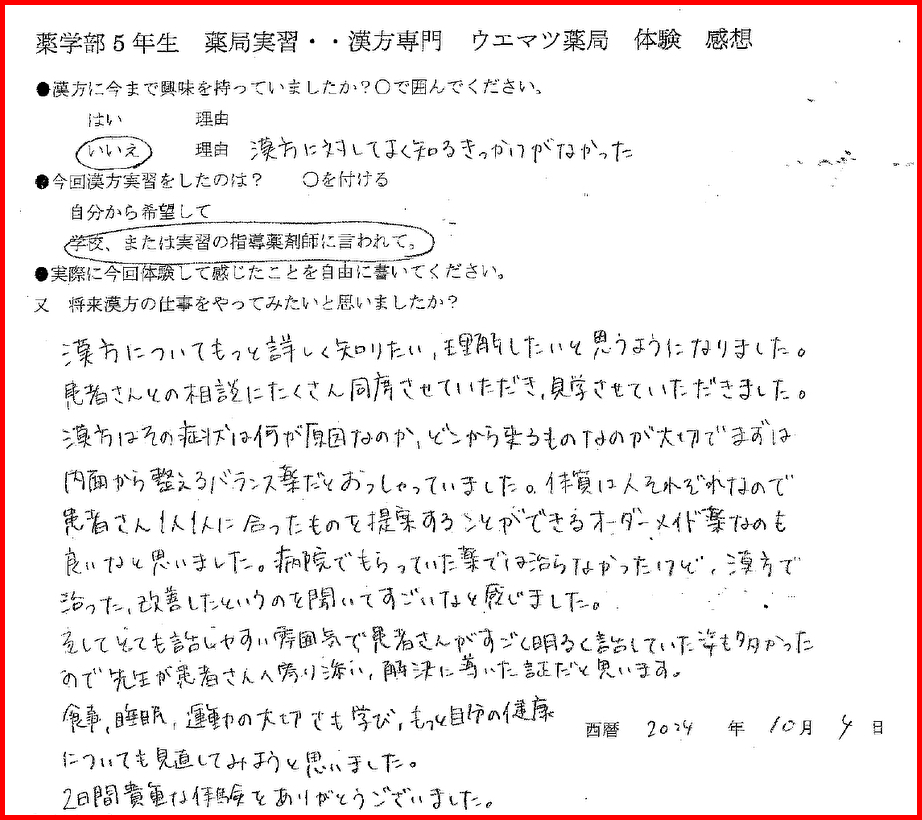 薬学部5年生　薬局実習・・漢方専門　ウエマツ薬局　体験　感想
●漢方に今まで興味を持っていましたか？〇で囲んでください。
はい　理由
いいえ　理由　漢方に対してよく知るきっかけがなかった
●今回漢方実習をしたのは？　〇を付ける
自分から希望して
学校、または実習の指導薬剤師に言われて。
●実際に今回体験して感じたことを自由に書いてください。
又　将来漢方の仕事をやってみたいと思いましたか？
漢方についてもっと詳しく知りたい,理解したいと思うようになりました。
患者さんとの相談にたくさん同席させていただき,見学させていただきました。
漢方はその症状は何が原因なのか,どこから来るものなのが大切でまずは
内面から整えるバランス薬だとおっしゃっていました。体質は人それぞれなので
患者さん1人1人に合ったものを提案することができるオーダーメイド薬なのも
良いなと思いました。病院でもらっていた薬では治らなかったけど,漢方で
治った,改善したというのを聞いてすごいなと感じました。
そしてとても話しやすい雰囲気で患者さんがすごく明るく話していた姿も多かった
ので先生が患者さんへ寄り添い,解決に導いた証だと思います。
食事,睡眠,運動の大切さも学び,もっと自分の健康
についても見直してみようと思いました。
西暦　2024　年　10月　4　日
2日間貴重な体験をありがとうございました。